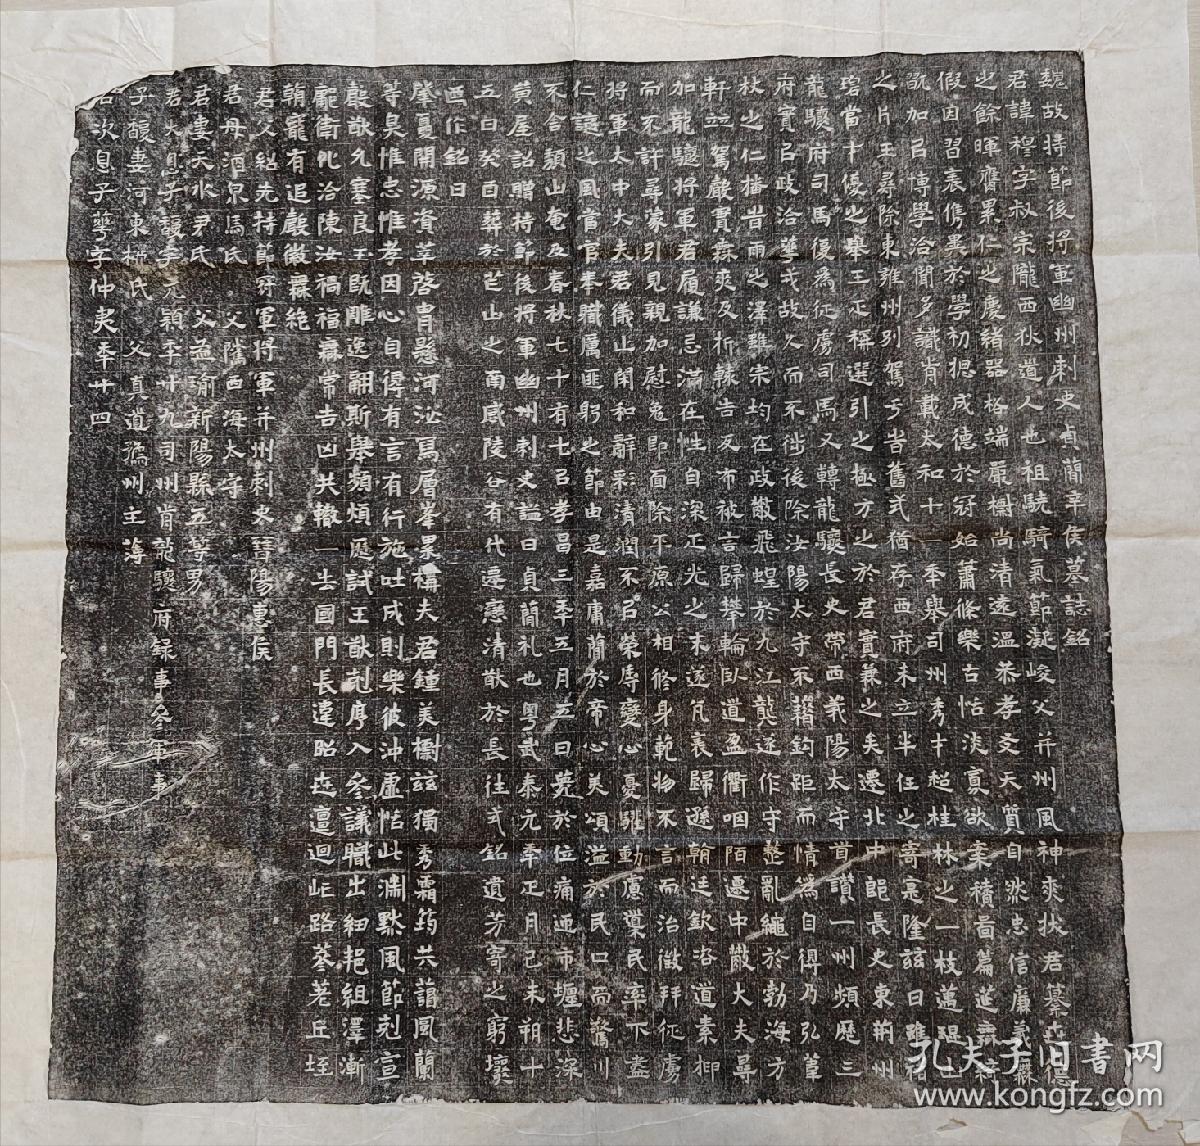 魏故持節後將軍幽州刺史貞簡辛侯墓誌銘
君諱穆字叔宗隴西狄道人也祖驍騎氣節凝峻父并州風神爽狀君纂世德
之餘暉膺累仁之慶緒器格端嚴樹尚清遠溫恭孝友天質自然忠信廉義
假因習衷儁異於學初摁成德於冠始蕭條樂古恬淡寡欲
加以博學洽聞多識前載太和十一年舉司州秀才超桂林之一枝邁琨山
之片玉尋除東雍州別駕于旹舊式猶存西府未立半任之寄寔隆茲日雖
當十優之舉三正稱選引之極方之於君實兼之矣遷北中郎長史東荊州
龍驤府司馬復為征虜司馬又轉龍驤長史帶西義陽太守首讚一州頻歷三
府實以政洽華戎故久而不徙後除汝陽太守不藉鉤距而情為自得乃弘葦
杖之仁播旹雨之澤雖宗均在政散飛蝗於九江龔遂作守整亂繩於勃海方
軒並駕嚴實霖爽及析轅告反布被言歸攀輪臥道盈衢咽陌遷中散大夫尋
加龍驤將軍君履謙忌滿在性自深正光之末遂凡衷歸遜翰廷欽洛道素抑
而不許尋蒙引見親加慰勉即面除平原公相修身範物不言而治徵拜征虜
將軍太中大夫君儀止閑和辭彩清潤不以榮辱變心憂駭動慮稟民率下盡
仁讓之風官奉職厲匪躬之節由是嘉庸簡於帝心美頌溢於民口而驚川
不舍頹山奄及春秋七十有七以孝昌三年五月五日薨於位痛逥市壥悲深
黃屋詔贈持節後將軍幽州刺史謚曰貞簡礼也粵武泰元年正月己未朔十
五日癸酉葬於芒山之南咸陵谷有代遷戀清猷於長往式銘遺芳寄之窮壤
作銘曰
肇憂開源資莘啓冑懸河泌寫層峯累構夫君鍾美樹茲獨秀霜筠共藹風蘭
等臭惟忠惟孝因心自得有言有行施吐成則樂彼沖虛恬此淵默風節剋宣
殷猷允塞良玉既雕逸翮斯舉頻煩歷試王猷剋序入參議職出紐艳組澤漸
龐衛化洽陳汝禍福霖常吉凶共轍一生國門長違昭世邅迴岐路蓼荖丘垤
翰寵有追嚴徽霖絶
君父紹先持節冠軍將軍并州刺史晉陽惠侯
君母酒泉馬氏 父騭西海太守
君妻天水尹氏 父益瑜新陽縣五等男
君大息子馥字元穎年廿九司州前龍驤府録事參軍事
子馥妻河東柳氏 父真道豫州主簿
君次息子華字仲夷年廿四
孔夫子旧書网
www.kongfz.com